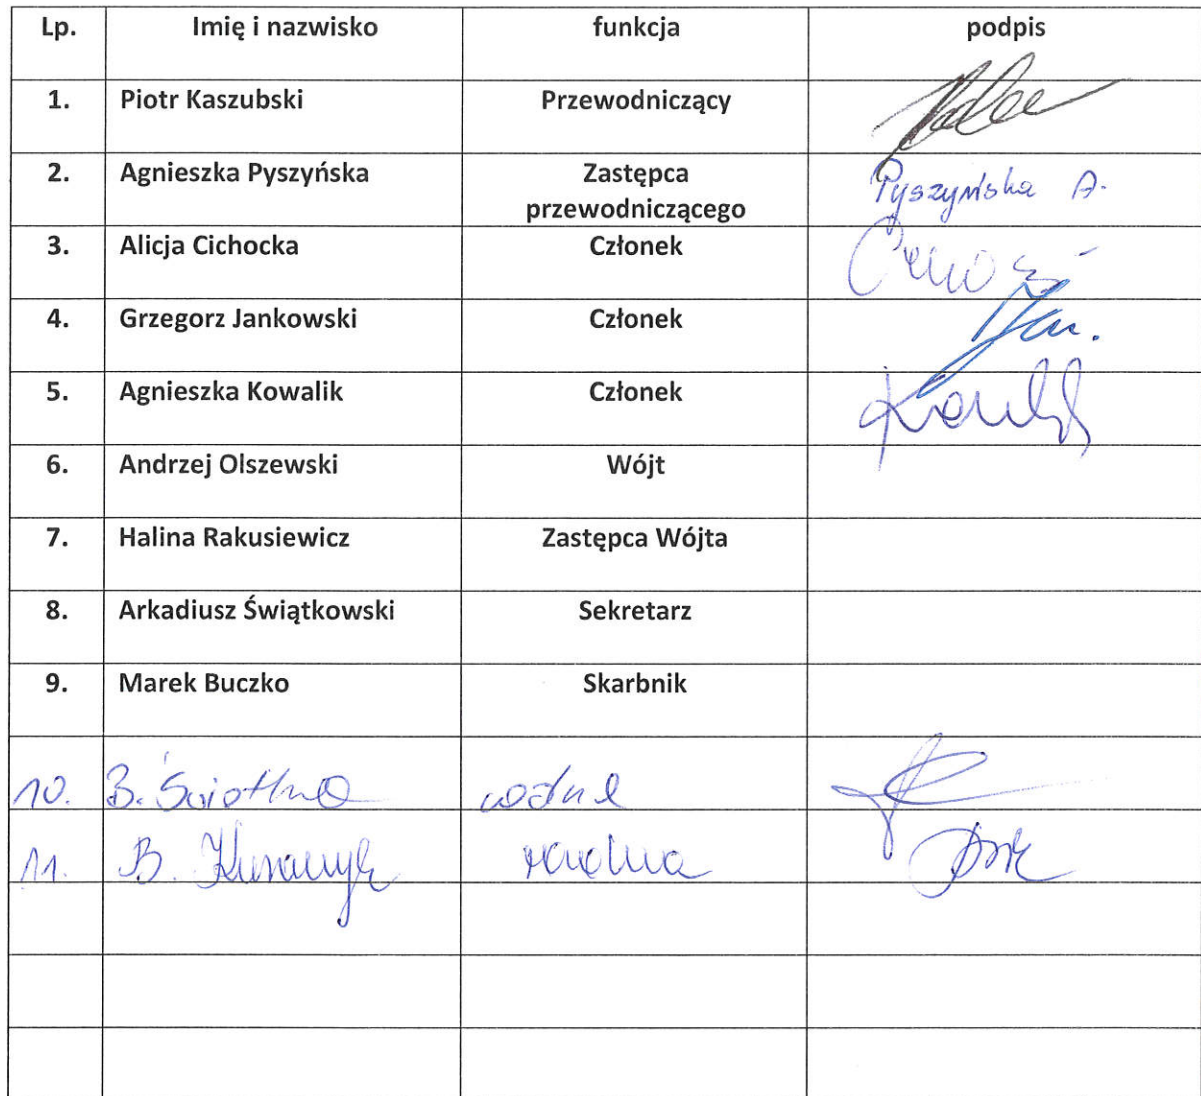 Lp. Imię i nazwisko funkcja podpis
1. Piotr Kaszubski Przewodniczący
2. Agnieszka Pyszyńska Zastępca przewodniczącego Pyszyńska A.
3. Alicja Cichocka Członek
4. Grzegorz Jankowski Członek Jan.
5. Agnieszka Kowalik Członek Kowalik
6. Andrzej Olszewski Wójt
7. Halina Rakusiewicz Zastępca Wójta
8. Arkadiusz Świątkowski Sekretarz
9. Marek Buczko Skarbnik
10. B.
11. B. radna